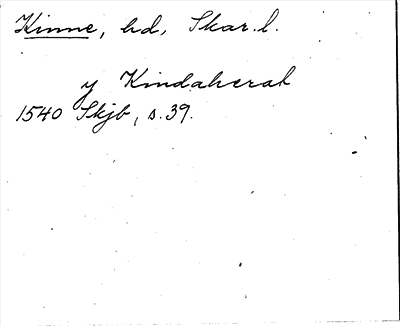 Kinne, hd, Skar. l.
y Kindaherat
1540 Skjb, s. 39.